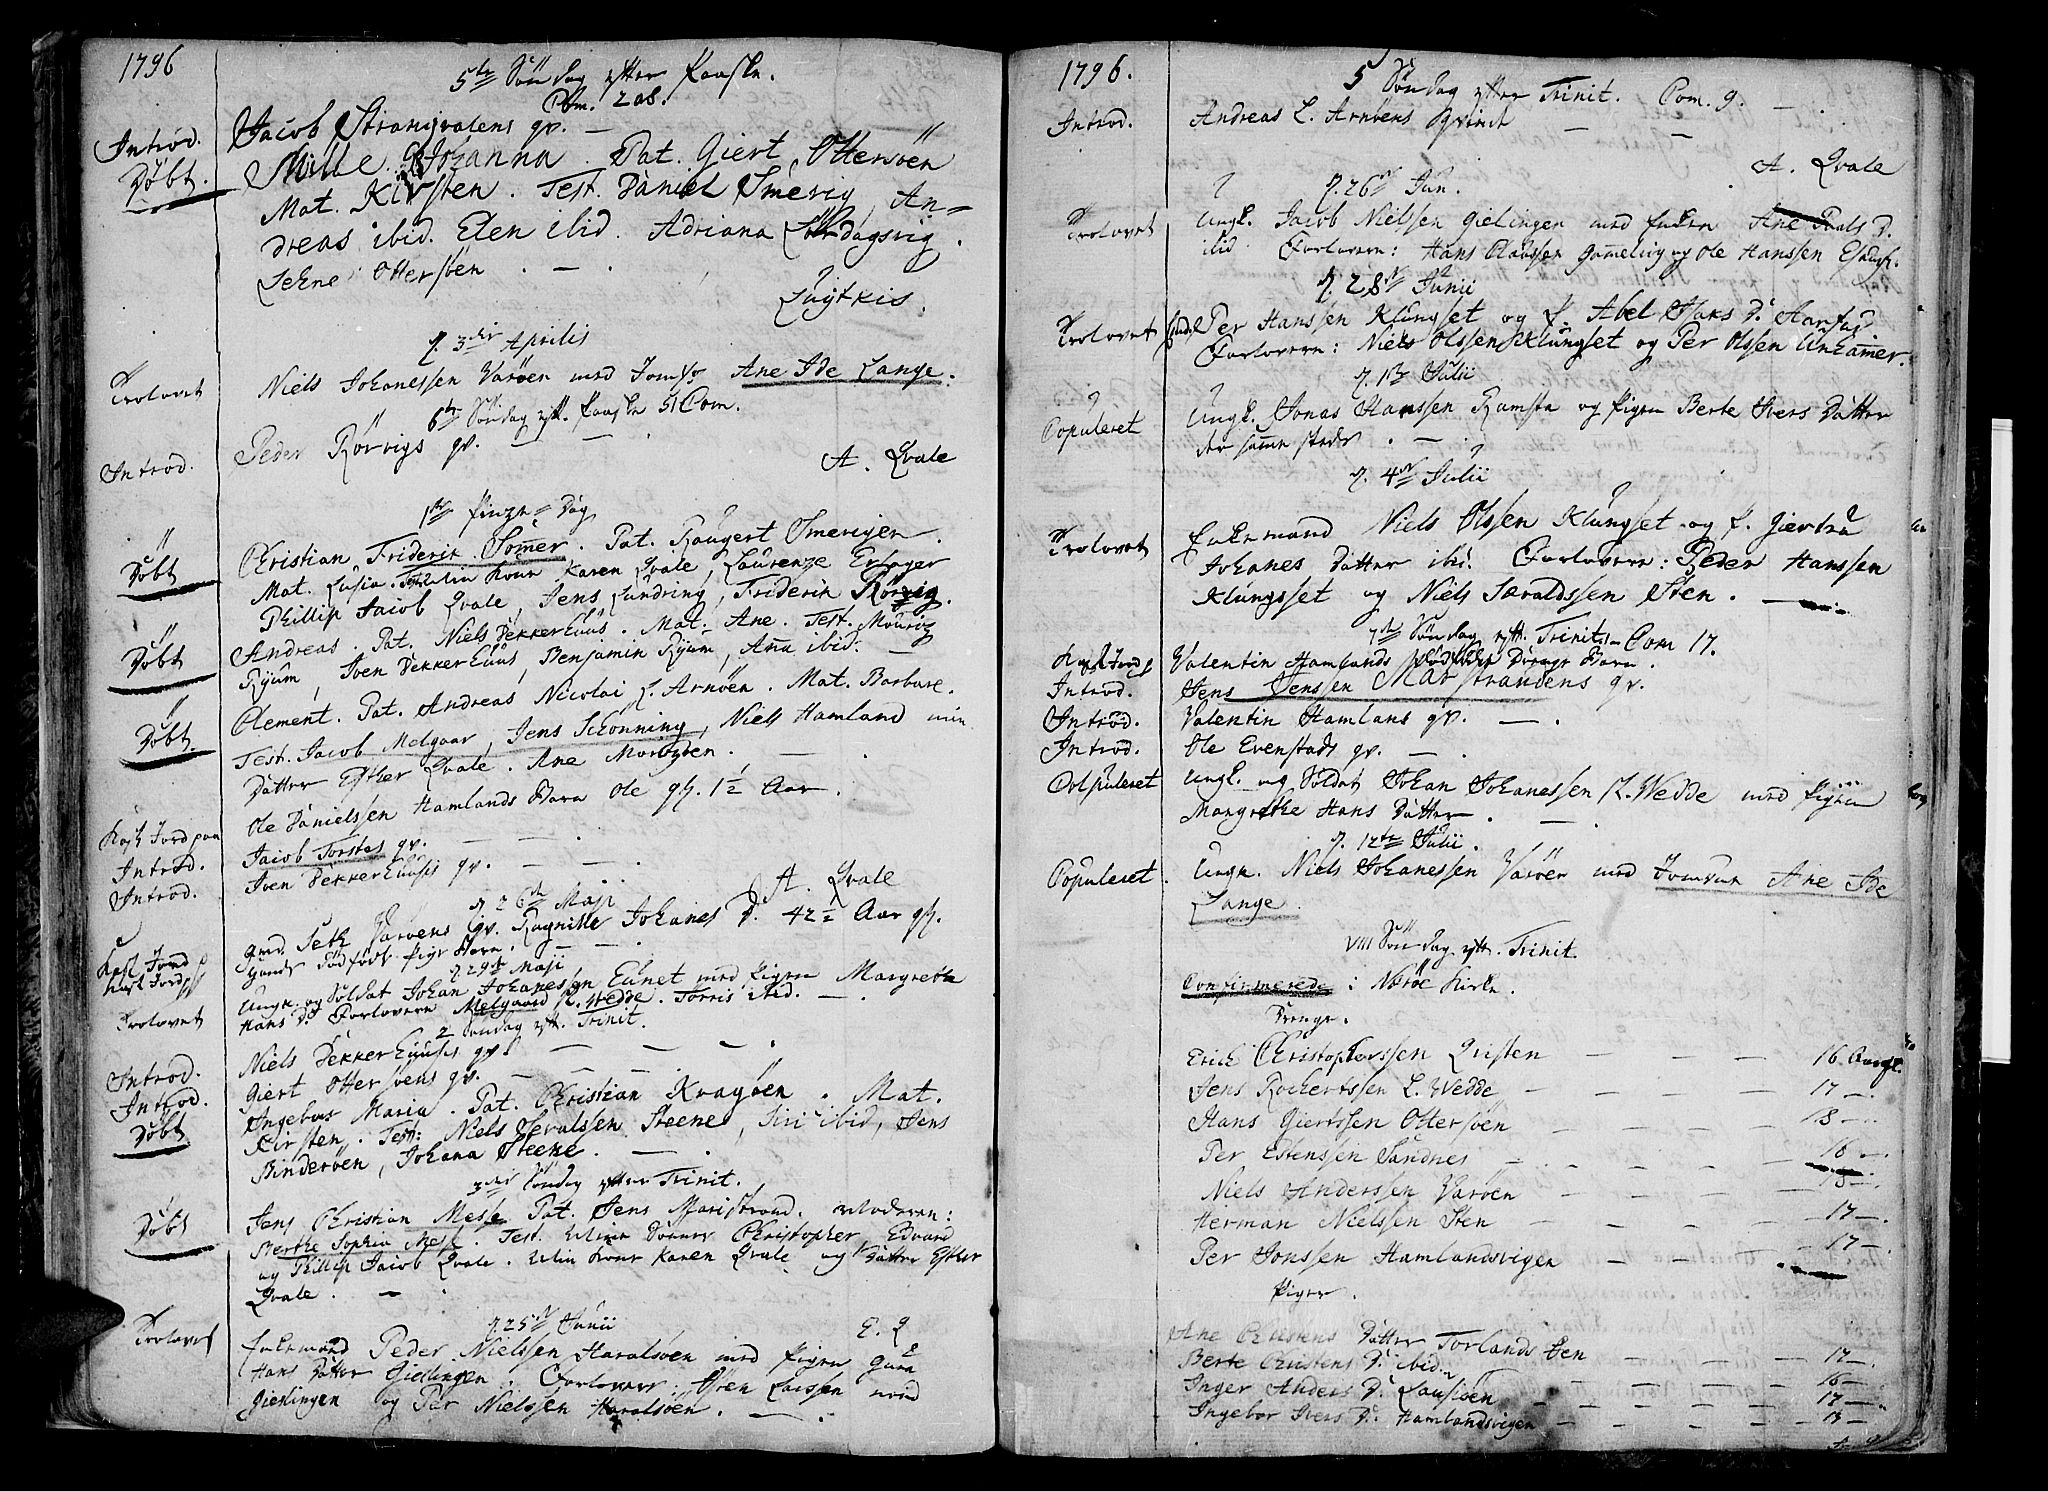 1796
5te Söndag efter Paaske.
Com. 208.
Introd. Jacob Strandvalens qv. —
Döbt. Mille Johanna. Pat. Giert Ottersöen
Mat. Kirsten. Test. Daniel Smevig, An=
dreas ibid. Elen ibid. Adriana Lördagsvig.
Lehne Ottersöen . — .
Lüÿtkis.
d. 3die Aprilis
Trolovet Niels Johanessen Varöen med Jomfr Ane Ide Lange.
6te Söndag eft. Paaske 51 Com.
Introd. Peder Rörvigs qv. — —
A. Qvale
1ste Pinze=Dag
Döbt Christian Friderik Sömer. Pat. Raugert Smevigen.
Mat. Lusia. Test. Min Kone Karen Qvale, Laurenze
Phillip Jacob Qvale, Jens Lundring, Friderik Rörvig.
Döbt Andreas. Pat. Niels Dekkerhuus. Mat. Ane. Test. Mouriz
Ryum, Iven Dekkerhuus, Benjamin Ryum, Anna ibid. —
Döbt Clement. Pat. Andreas Nicolai L. Arnöen. Mat. Barbare.
Test. Jacob Melgaar, Jens Schonning, Niels Hamland min
Datter Esther Qvale. Ane Morizöen. —
Kast Jord paa Ole Danielssen Hamlands Barn Ole gl. 1½ Aar.
Introd. Jacob Torstas qv. — —
Introd. Iven Dekkerhuuses qv. — —
A. Qvale
d. 26de Maji
Kast Jord p Gmd. Seth Varöens qv. Ragnille Johanes D. 42½ Aar gl.
Kast Jord pp Hands dödfödt Pige Barn. — —
d. 29de Maji
Trolovet Ungk. og Soldat Johan Johanesen Eünet med Pigen Margrethe
Hans D. Forlovern Melgaard L. Wedde. Torris ibid. — .
2 Söndag eft. Trinit.
Introd. Niels Dekkerhuuses qv. — — — .
Introd. Giert Ottersöens qv. — — —
Döbt Ingebor Maria. Pat. Christian Kvagöen. Mat.
Kirsten. Test: Niels Sevalssen Steene, Siri ibid, Jens
Binderöen, Johana Steene. — .
3die Söndag efter Trinit.
Döbt Jens Christian Messe Pat. Jens Maristrand. Moderen:
Berthe Sophia Mess. Test. Mine Sönner Christopher Edvard
og Phillip Jacob Qvale. Min Kone Karen Qvale og Datter Esther
Qvale. — .
d. 25de Junii
E. Q
Trolovet Enkemand Peder Nielssen Haralsöen med Pigen Gura
Hans Datter Gieslingen. Forlovere: Sven Larssen med
Gieslingen og Per Nielssen Haralsöen. — .
1796.
5 Söndag efter Trinit. Com. 9. — .
Introd. Andreas L. Arnöens Qvinde — —
A. Qvale
d. 26de Jun.
Trolovet Ungk. Jacob Nielssen Gielingen med Enken Ane Pools D.
ibid. Forlovern: Hans Clabssen Gamelvig og Ole Hanssen
d. 28de Junii
Trolovet Per Hanssen Klungset og P. Abel Isaks D. Aarfar.
Forlovern: Niels Olssen Klungset og Per Olssen
d. 1ste Julii
Copuleret Ungk. Jonas Hanssen Ramsta og Pigen Berte Ivers Datter
der samme steds . — .
d. 4de Julii
Trolovet Enkemand Niels Olssen Klungset og P. Giertru
Johanes Datter ibid. Forlovern: Peder Hanssen
Klungsset og Niels Særaldssen Sten. —
7de Söndag eft. Trinit. Com 17.
Kast Jord p Valentin Hamlands Dödfödt Drenge Barn.
Introd. Jens Jenssen Marstrandens qv.
Introd. Valentin Hamlans qv. — .
Introd. Ole Evenstads qv. —
Copuleret Ungk. og Soldat Johan Johanessen K. Wedde med Pigen
Margrethe Hans Datter . —
d. 12te Julii.
Copuleret. Ungk. Niels Johanessen Varöen med Jomfrue Ane Ide
Lange.
VIII Söndag eft. Trinit.
Confirmerede i Næröe Kirke.
Drenge.
Erich Christopherssen Qvisten — — — 16 Aar gl.
Jens Rochertssen L. Wedde — — — 17 —.
Hans Giertssen Ottersöen — — — 18 —
Per Estenssen Sandnes — — — 16 —.
Niels Anderssen Varöen — — — 18 —
Herman Nielssen Sten — — — 17 —.
Per Jonssen Hamlandsvigen — — — 17 —.
Piger.
Ane Christens Datter Torlands Sen — — — 17 —.
Berte Christens D. ibid. — — — 16 —
Inger Anders D. Lausöen — — — 17 —
Ingebor Ivers D. Hamlandsvigen — — — 13 —